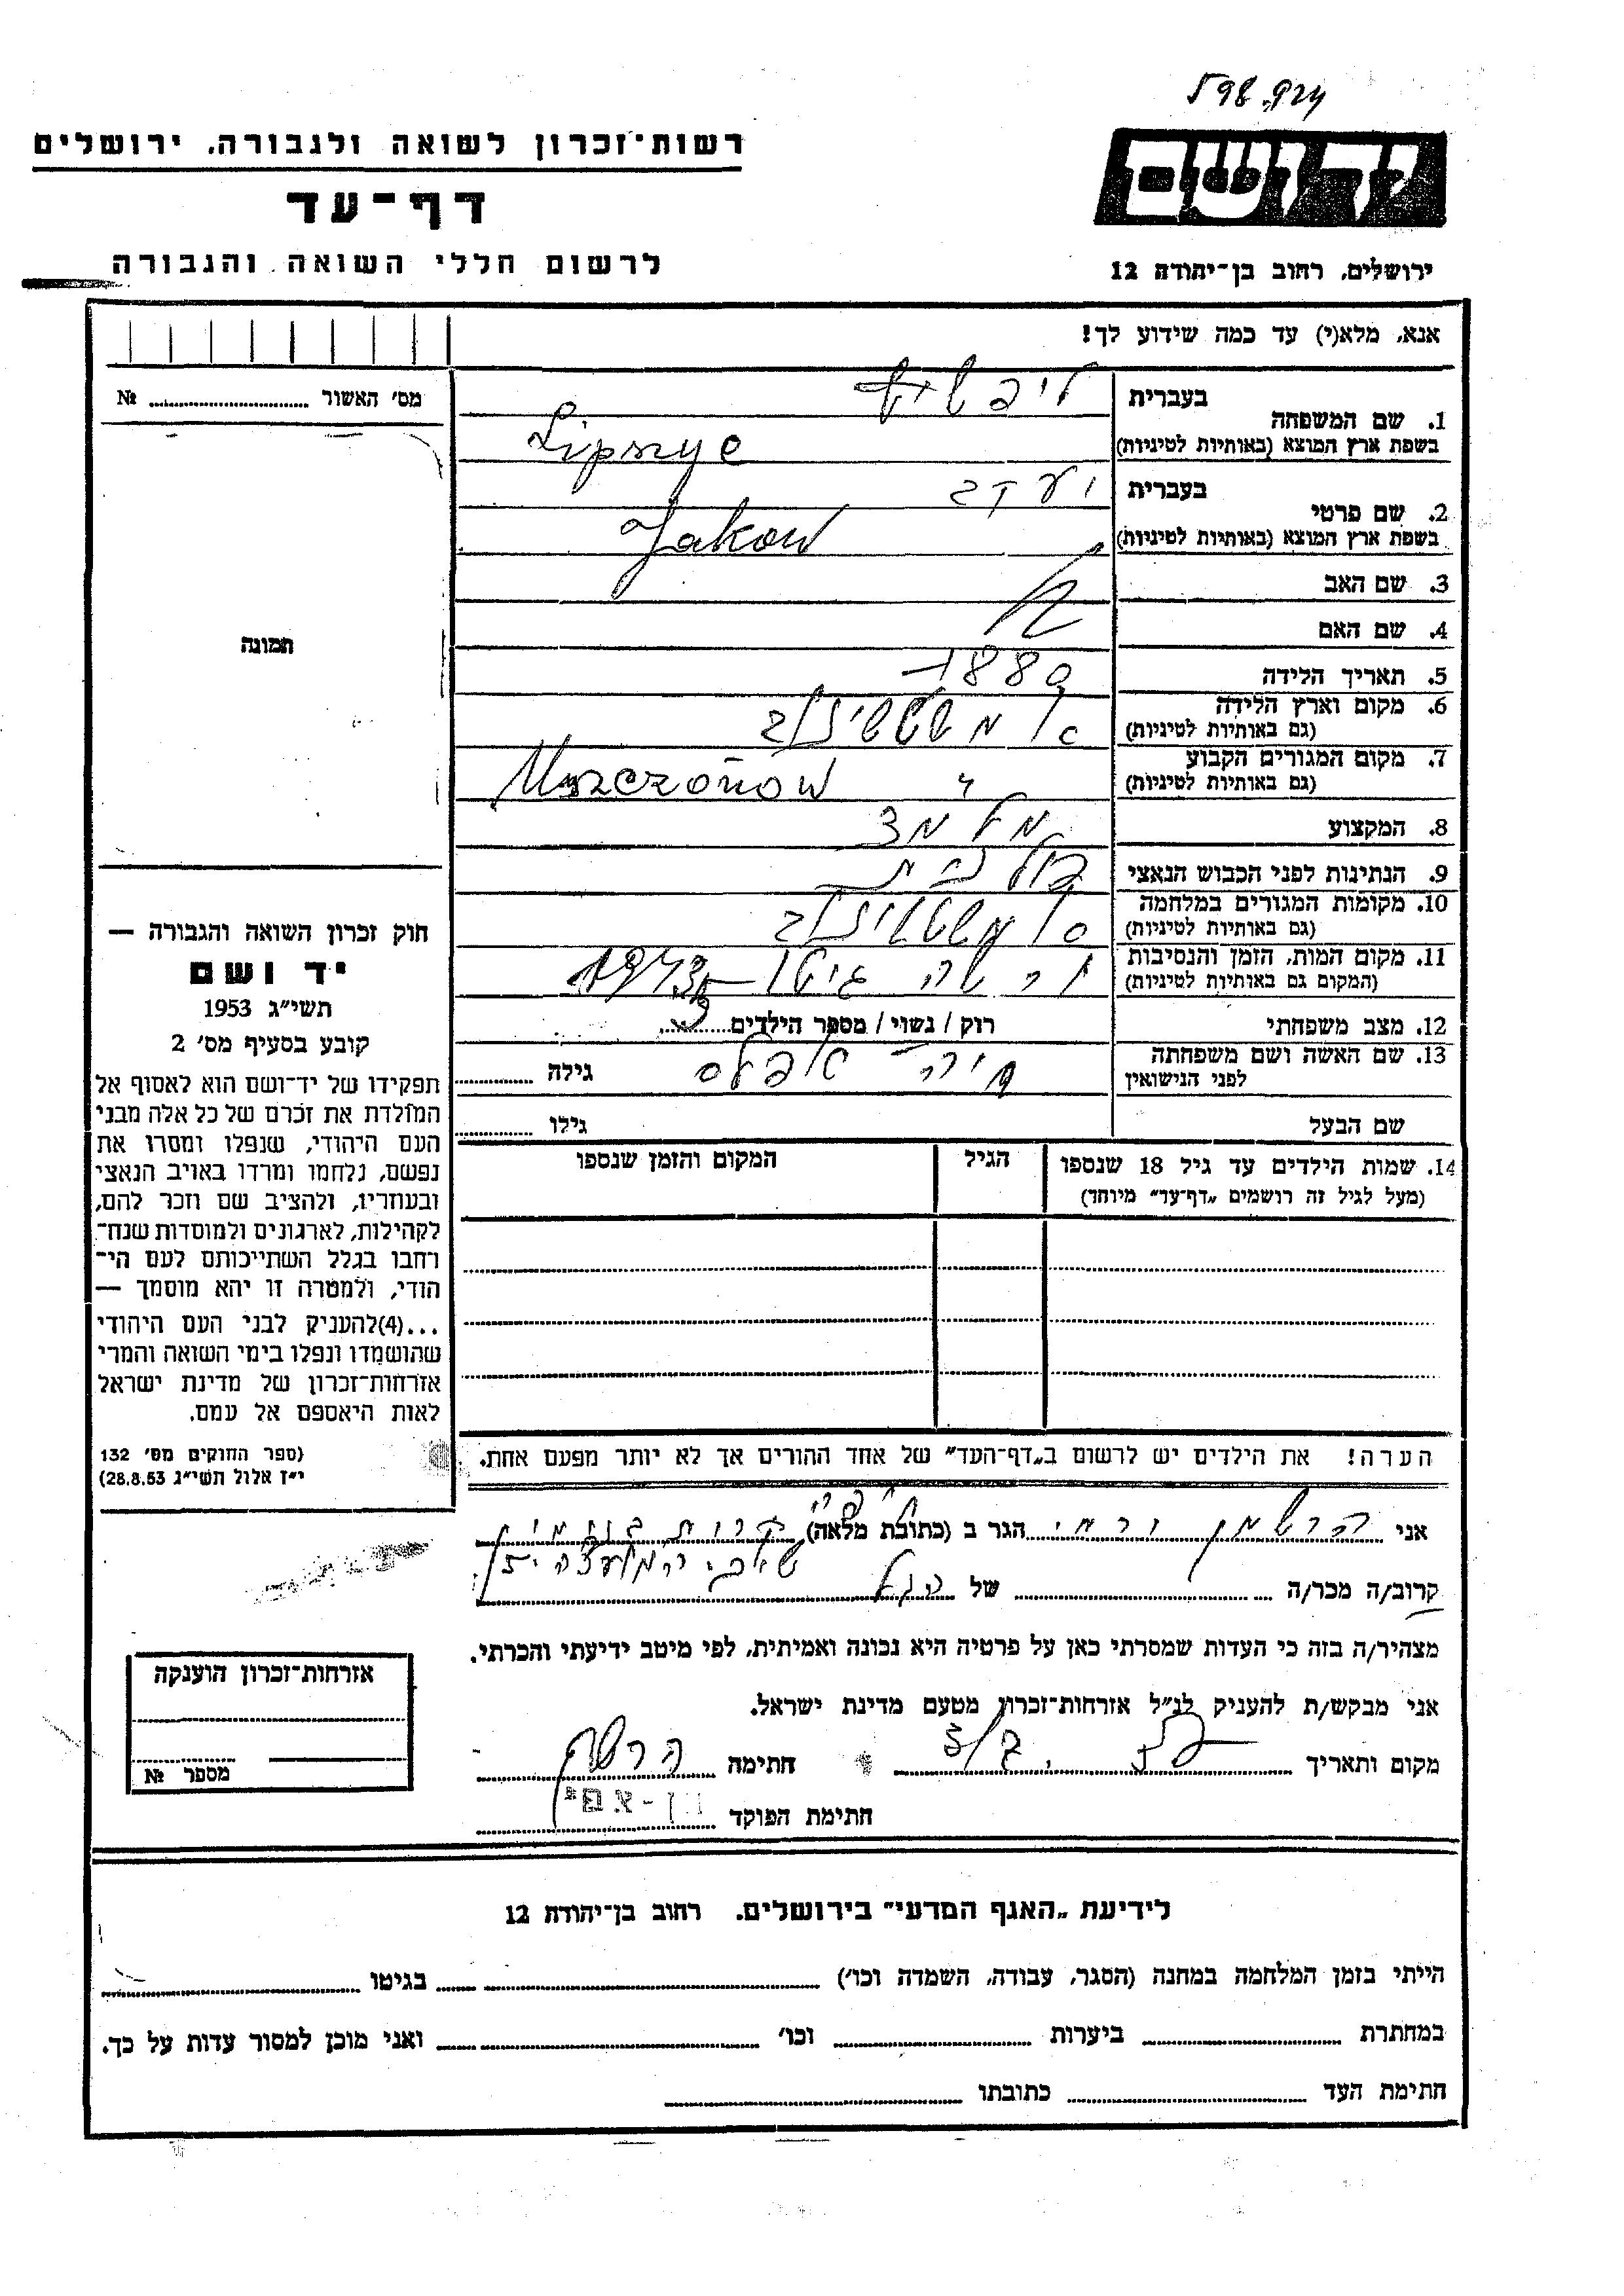 רשות־זכרון לשואה ולגבורה, ירושלים
דף־עד
לרשום חללי השואה והגבורה
יד ושם
ירושלים, רחוב בן־יהודה 12
אנא, מלא(י) עד כמה שידוע לך!
מס׳ האשור № ........
תמונה
1. שם המשפחה
בעברית ליפשיץ
בשפת ארץ המוצא (באותיות לטיניות) Lipszyc
2. שם פרטי
בעברית יעקב
בשפת ארץ המוצא (באותיות לטיניות) Jakow
3. שם האב
4. שם האם
5. תאריך הלידה 1889
6. מקום וארץ הלידה
(גם באותיות לטיניות)
7. מקום המגורים הקבוע
(גם באותיות לטיניות) " Mszczonów
8. המקצוע מלמד
9. הנתינות לפני הכבוש הנאצי פולנית
10. מקומות המגורים במלחמה
(גם באותיות לטיניות)
11. מקום המות, הזמן והנסיבות
(המקום גם באותיות לטיניות) ורשה גיטו 1943
12. מצב משפחתי רוק / נשוי / מספר הילדים
13. שם האשה ושם משפחתה
לפני הנישואין גילה ........
שם הבעל גילו ........
14. שמות הילדים עד גיל 18 שנספו
(מעל לגיל זה רושמים „דף־עד״ מיוחד)
הגיל
המקום והזמן שנספו
הערה! את הילדים יש לרשום ב„דף־העד״ של אחד ההורים אך לא יותר מפעם אחת.
חוק זכרון השואה והגבורה —
יד ושם
תשי״ג 1953
קובע בסעיף מס׳ 2
תפקידו של יד־ושם הוא לאסוף אל
המולדת את זכרם של כל אלה מבני
העם היהודי, שנפלו ומסרו את
נפשם, נלחמו ומרדו באויב הנאצי
ובעוזריו, ולהציב שם וזכר להם,
לקהילות, לארגונים ולמוסדות שנח־
רחבו בגלל השתייכותם לעם הי־
הודי, ולמטרה זו יהא מוסמך —
...(4)להעניק לבני העם היהודי
שהושמדו ונפלו בימי השואה והמרי
אזרחות־זכרון של מדינת ישראל
לאות היאספם אל עמם.
(ספר החוקים מס׳ 132
י״ז אלול תשי״ג 28.8.53)
אני הרשמן הגר ב (כתובת מלאה)
קרוב/ה מכר/ה ........ של
מצהיר/ה בזה כי העדות שמסרתי כאן על פרטיה היא נכונה ואמיתית, לפי מיטב ידיעתי והכרתי.
אני מבקש/ת להעניק לנ״ל אזרחות־זכרון מטעם מדינת ישראל.
מקום ותאריך חתימה
חתימת הפוקד
אזרחות־זכרון הוענקה
מספר №
לידיעת „האגף המדעי״ בירושלים. רחוב בן־יהודה 12
הייתי בזמן המלחמה במחנה (הסגר, עבודה, השמדה וכו׳) ........ בגיטו ........
במחתרת ........ ביערות ........ וכו׳ ........ ואני מוכן למסור עדות על כך.
חתימת העד ........ כתובתו ........